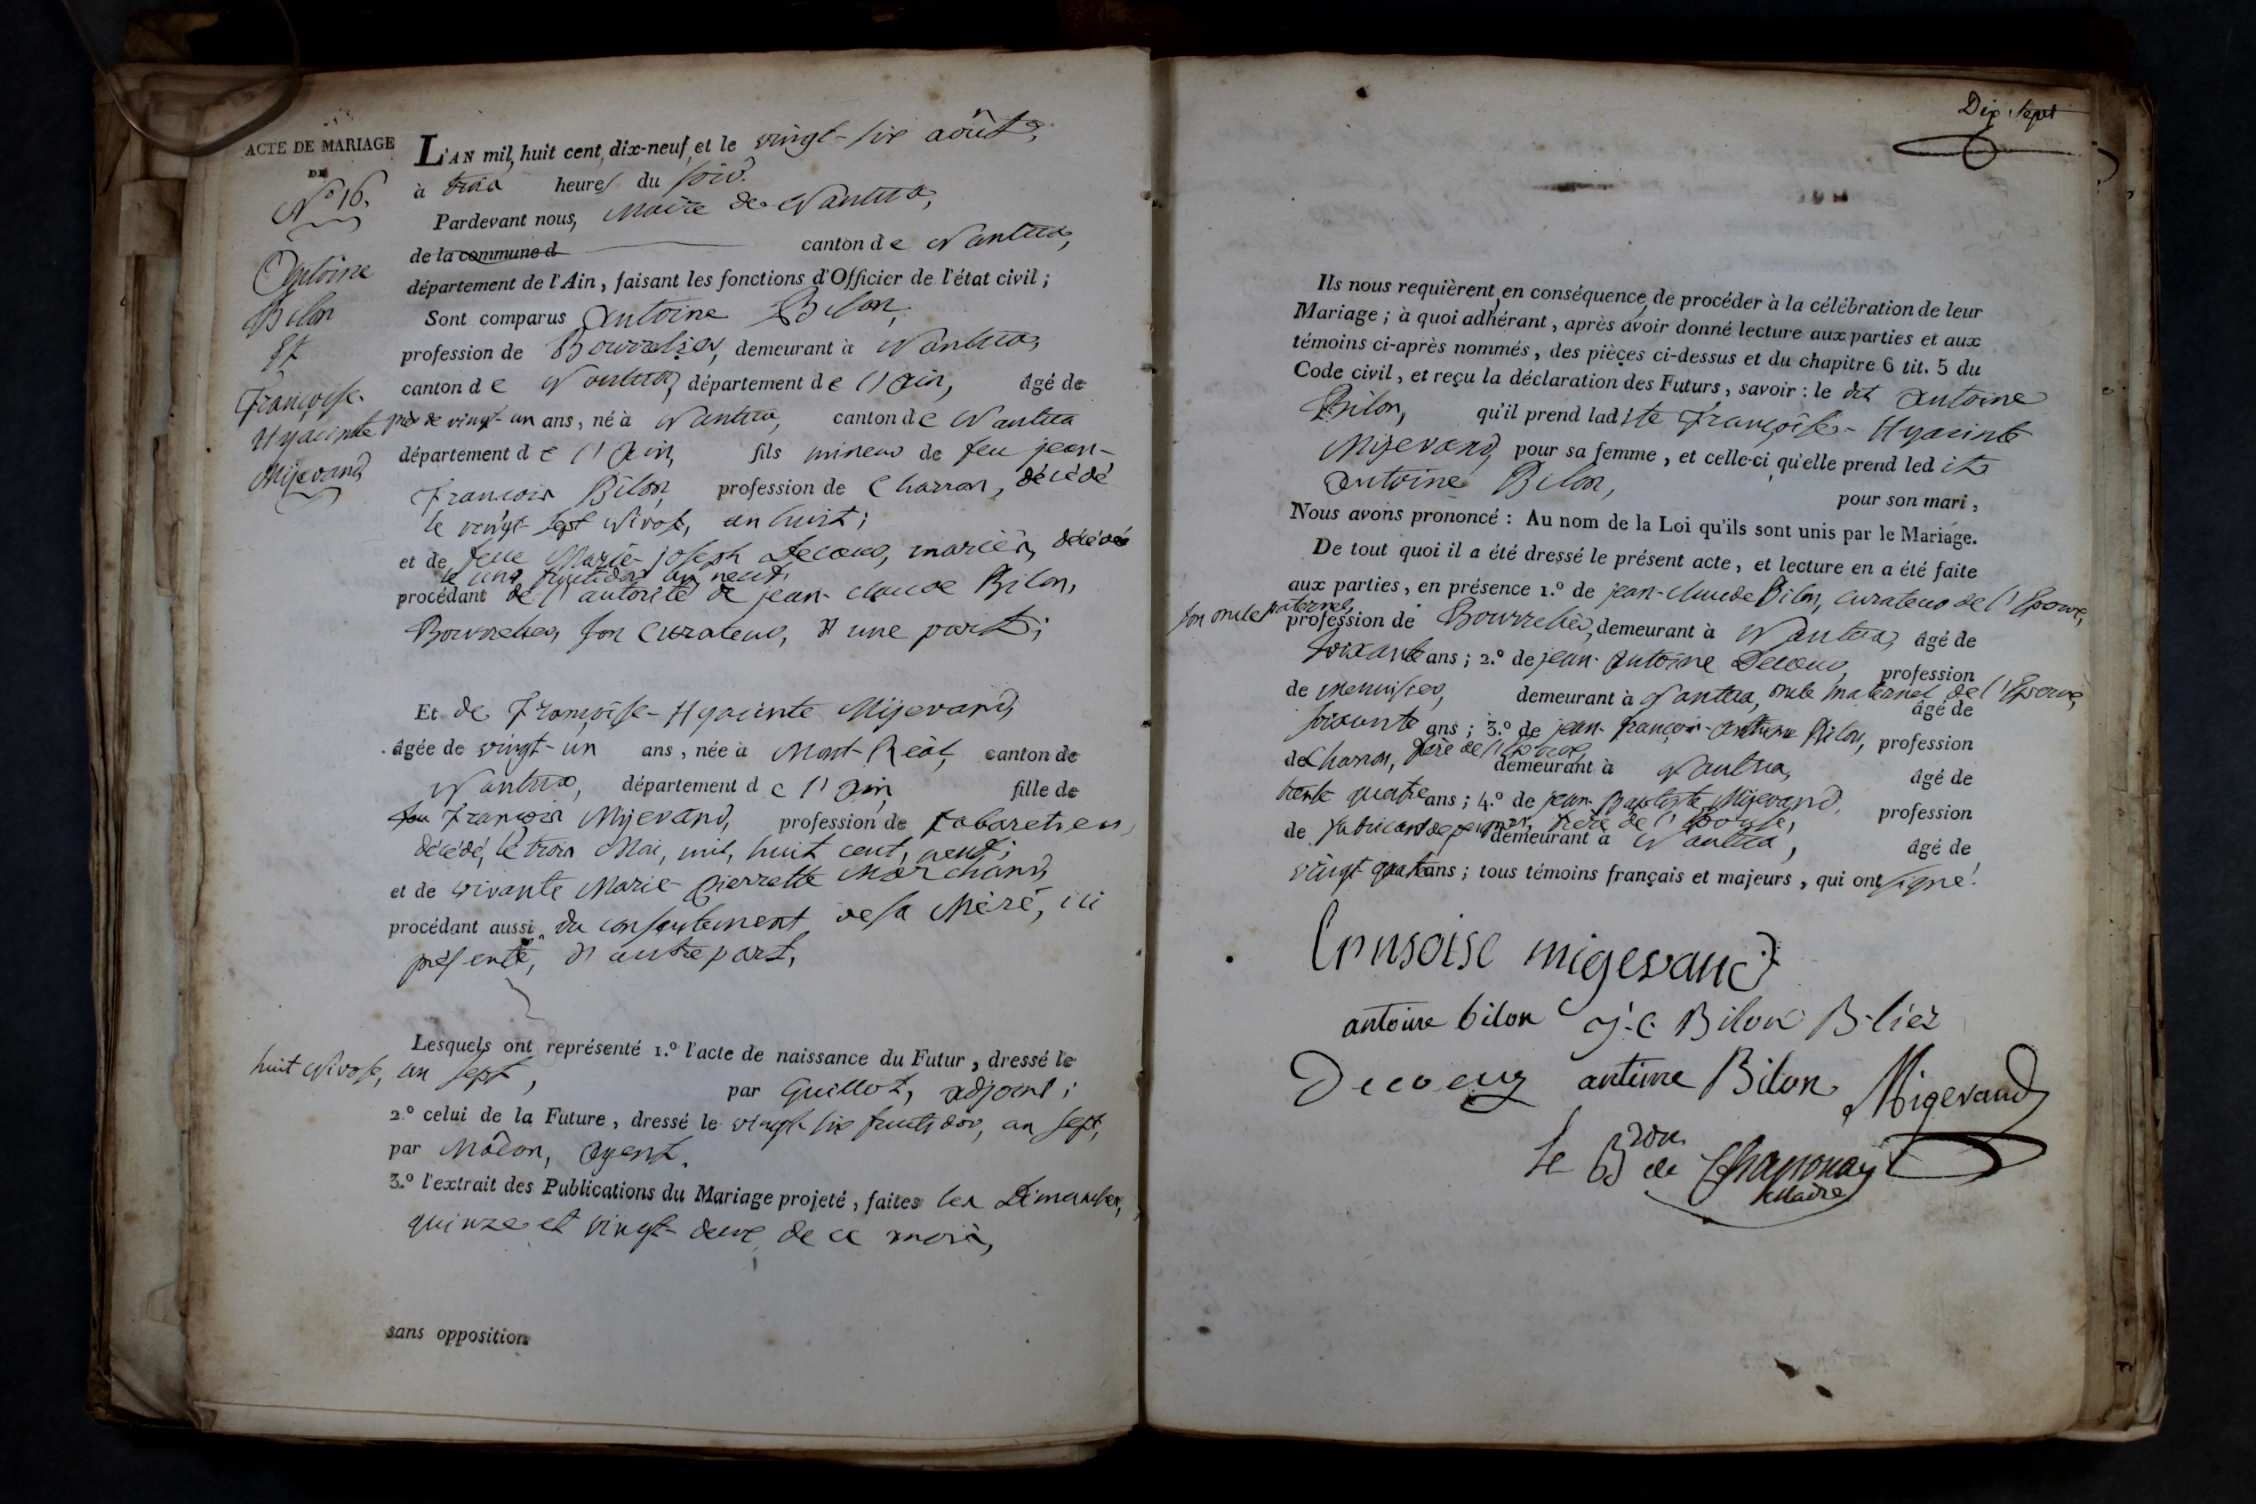 ACTE DE MARIAGE
DE
N.º 16.
Antoine
Bilon
Et
Françoise-
Hyacinte
Mijevand
L'AN mil huit cent dix-neuf, et le vingt-six août,
à trois heures du soir.
Pardevant nous, Maire de Nantua,
de la commune d canton de Nantua,
département de l'Ain, faisant les fonctions d'Officier de l'état civil ;
Sont comparus Antoine Bilon,
profession de Bourrelier, demeurant à Nantua,
canton de Nantua, département de l'Ain, âgé de
près de vingt-un ans, né à Nantua, canton de Nantua
département de l'Ain, fils mineur de feu jean-
François Bilon, profession de Charron, décédé
le vingt-sept Nivose, an huit ;
et de feue Marie-joseph Decoeur, mariés, décédée
le cinq fructidor an neuf,
procédant de l'autorité de jean-claude Bilon,
Bourrelier, son Curateur, d'une part ;
Et de Françoise-Hyacinte Mijevand,
âgée de vingt-un ans, née à Mont-Réal, canton de
Nantua, département de l'Ain, fille de
feu François Mijevand, profession de Cabaretier,
décédé, le trois Mai, mil, huit cent, neuf ;
et de vivante Marie-Pierrette Marchand,
procédant aussi du consentement de sa Mère, ici
présente, d'autre part,
Lesquels ont représenté 1.º l'acte de naissance du Futur, dressé le
huit Nivose, an sept, par Guillot, adjoint ;
2.º celui de la Future, dressé le vingt-six fructidor, an sept,
par Mâcon, Agent.
3.º l'extrait des Publications du Mariage projeté, faites les Dimanches,
quinze et vingt-deux de ce mois,
sans opposition
Dix-sept
Ils nous requièrent en conséquence de procéder à la célébration de leur
Mariage ; à quoi adhérant, après avoir donné lecture aux parties et aux
témoins ci-après nommés, des pièces ci-dessus et du chapitre 6 tit. 5 du
Code civil, et reçu la déclaration des Futurs, savoir : le dit Antoine
Bilon, qu'il prend ladite Françoise-Hyacinte
Mijevand, pour sa femme, et celle-ci qu'elle prend ledit
Antoine Bilon, pour son mari,
Nous avons prononcé : Au nom de la Loi qu'ils sont unis par le Mariage.
De tout quoi il a été dressé le présent acte, et lecture en a été faite
aux parties, en présence 1.º de jean-claude Bilon, curateur de l'Epoux,
son oncle paternel,
profession de Bourrelier, demeurant à Nantua, âgé de
soixante ans ; 2.º de jean-Antoine Decoeur, profession
de menuisier, demeurant à Nantua, oncle maternel de l'Epoux, âgé de
soixante ans ; 3.º de jean-françois-antoine Bilon, profession
de Charron, frère de l'Epoux, demeurant à Nantua, âgé de
trente quatre ans ; 4.º de jean-Baptiste Mijevand, profession
de fabricant de peignes, frère de l'Epouse, demeurant à Nantua, âgé de
vingt quatre ans ; tous témoins français et majeurs, qui ont signé.
fransoise migevand
antoine bilon j.c. Bilon B-lier
Decoeur antoine Bilon Migevand
le B.ron de Chapponay
Maire